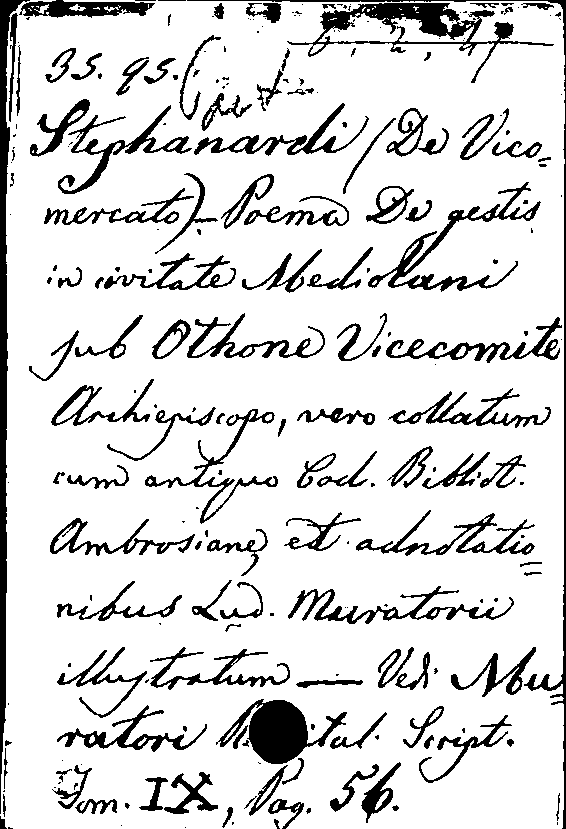 6, 2, 47
35. 95.
Stephanardi (De Vico=
mercato) – Poema De gestis
in civitate Mediolani
sub Othone Vicecomite
Archiepiscopo, vero collatum
cum antiquo Cod. Bibliot.
Ambrosiane, et adnotatio=
nibus Lud. Muratorii
illustratum — Vedi Mu=
ratori Script.
Tom. IX, Pag. 56.